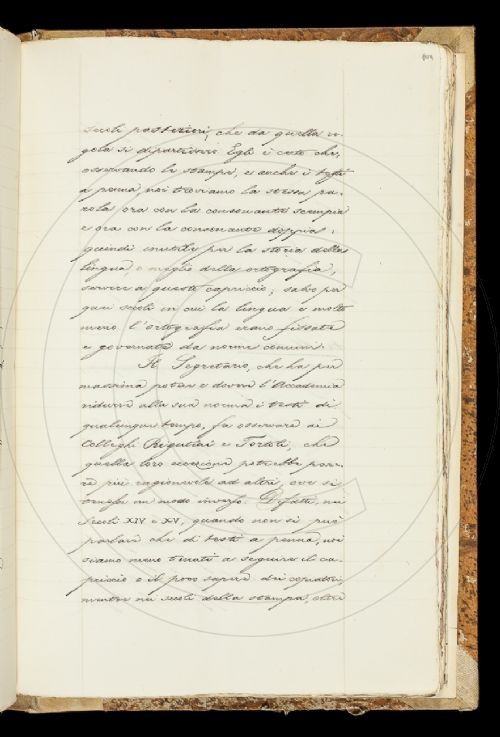 secoli posteriori, che da quella re-
gola si dipartissero. Egli è certo che,
osservando le stampe, e anche i testi
a penna noi troviamo la stessa pa-
rola ora con la consonante scempia
e ora con la consonante doppia:
quindi inutile per la storia della
lingua o meglio della ortografia,
servire a questo capriccio; salvo per
quei secoli in cui la lingua e molto
meno l'ortografia erano fissate
e governate da norme comuni.
Il Segretario, che ha per
massima potere e dovere l'Accademia
ridurre alla sua norma i testi di
qualunque tempo, fa osservare ai
Colleghi Rigutini e Tortoli, che
quella loro eccezione potrebbe pare-
re più ragionevole ad altri, ove si
tenesse in modo inverso. Difatti, nei
Secoli XIV e XV, quando non si può
parlare che di testi a penna, noi
siamo meno tenuti a seguire il ca-
priccio e il poco sapere dei copiatori,
mentre nei secoli della stampa, oltre